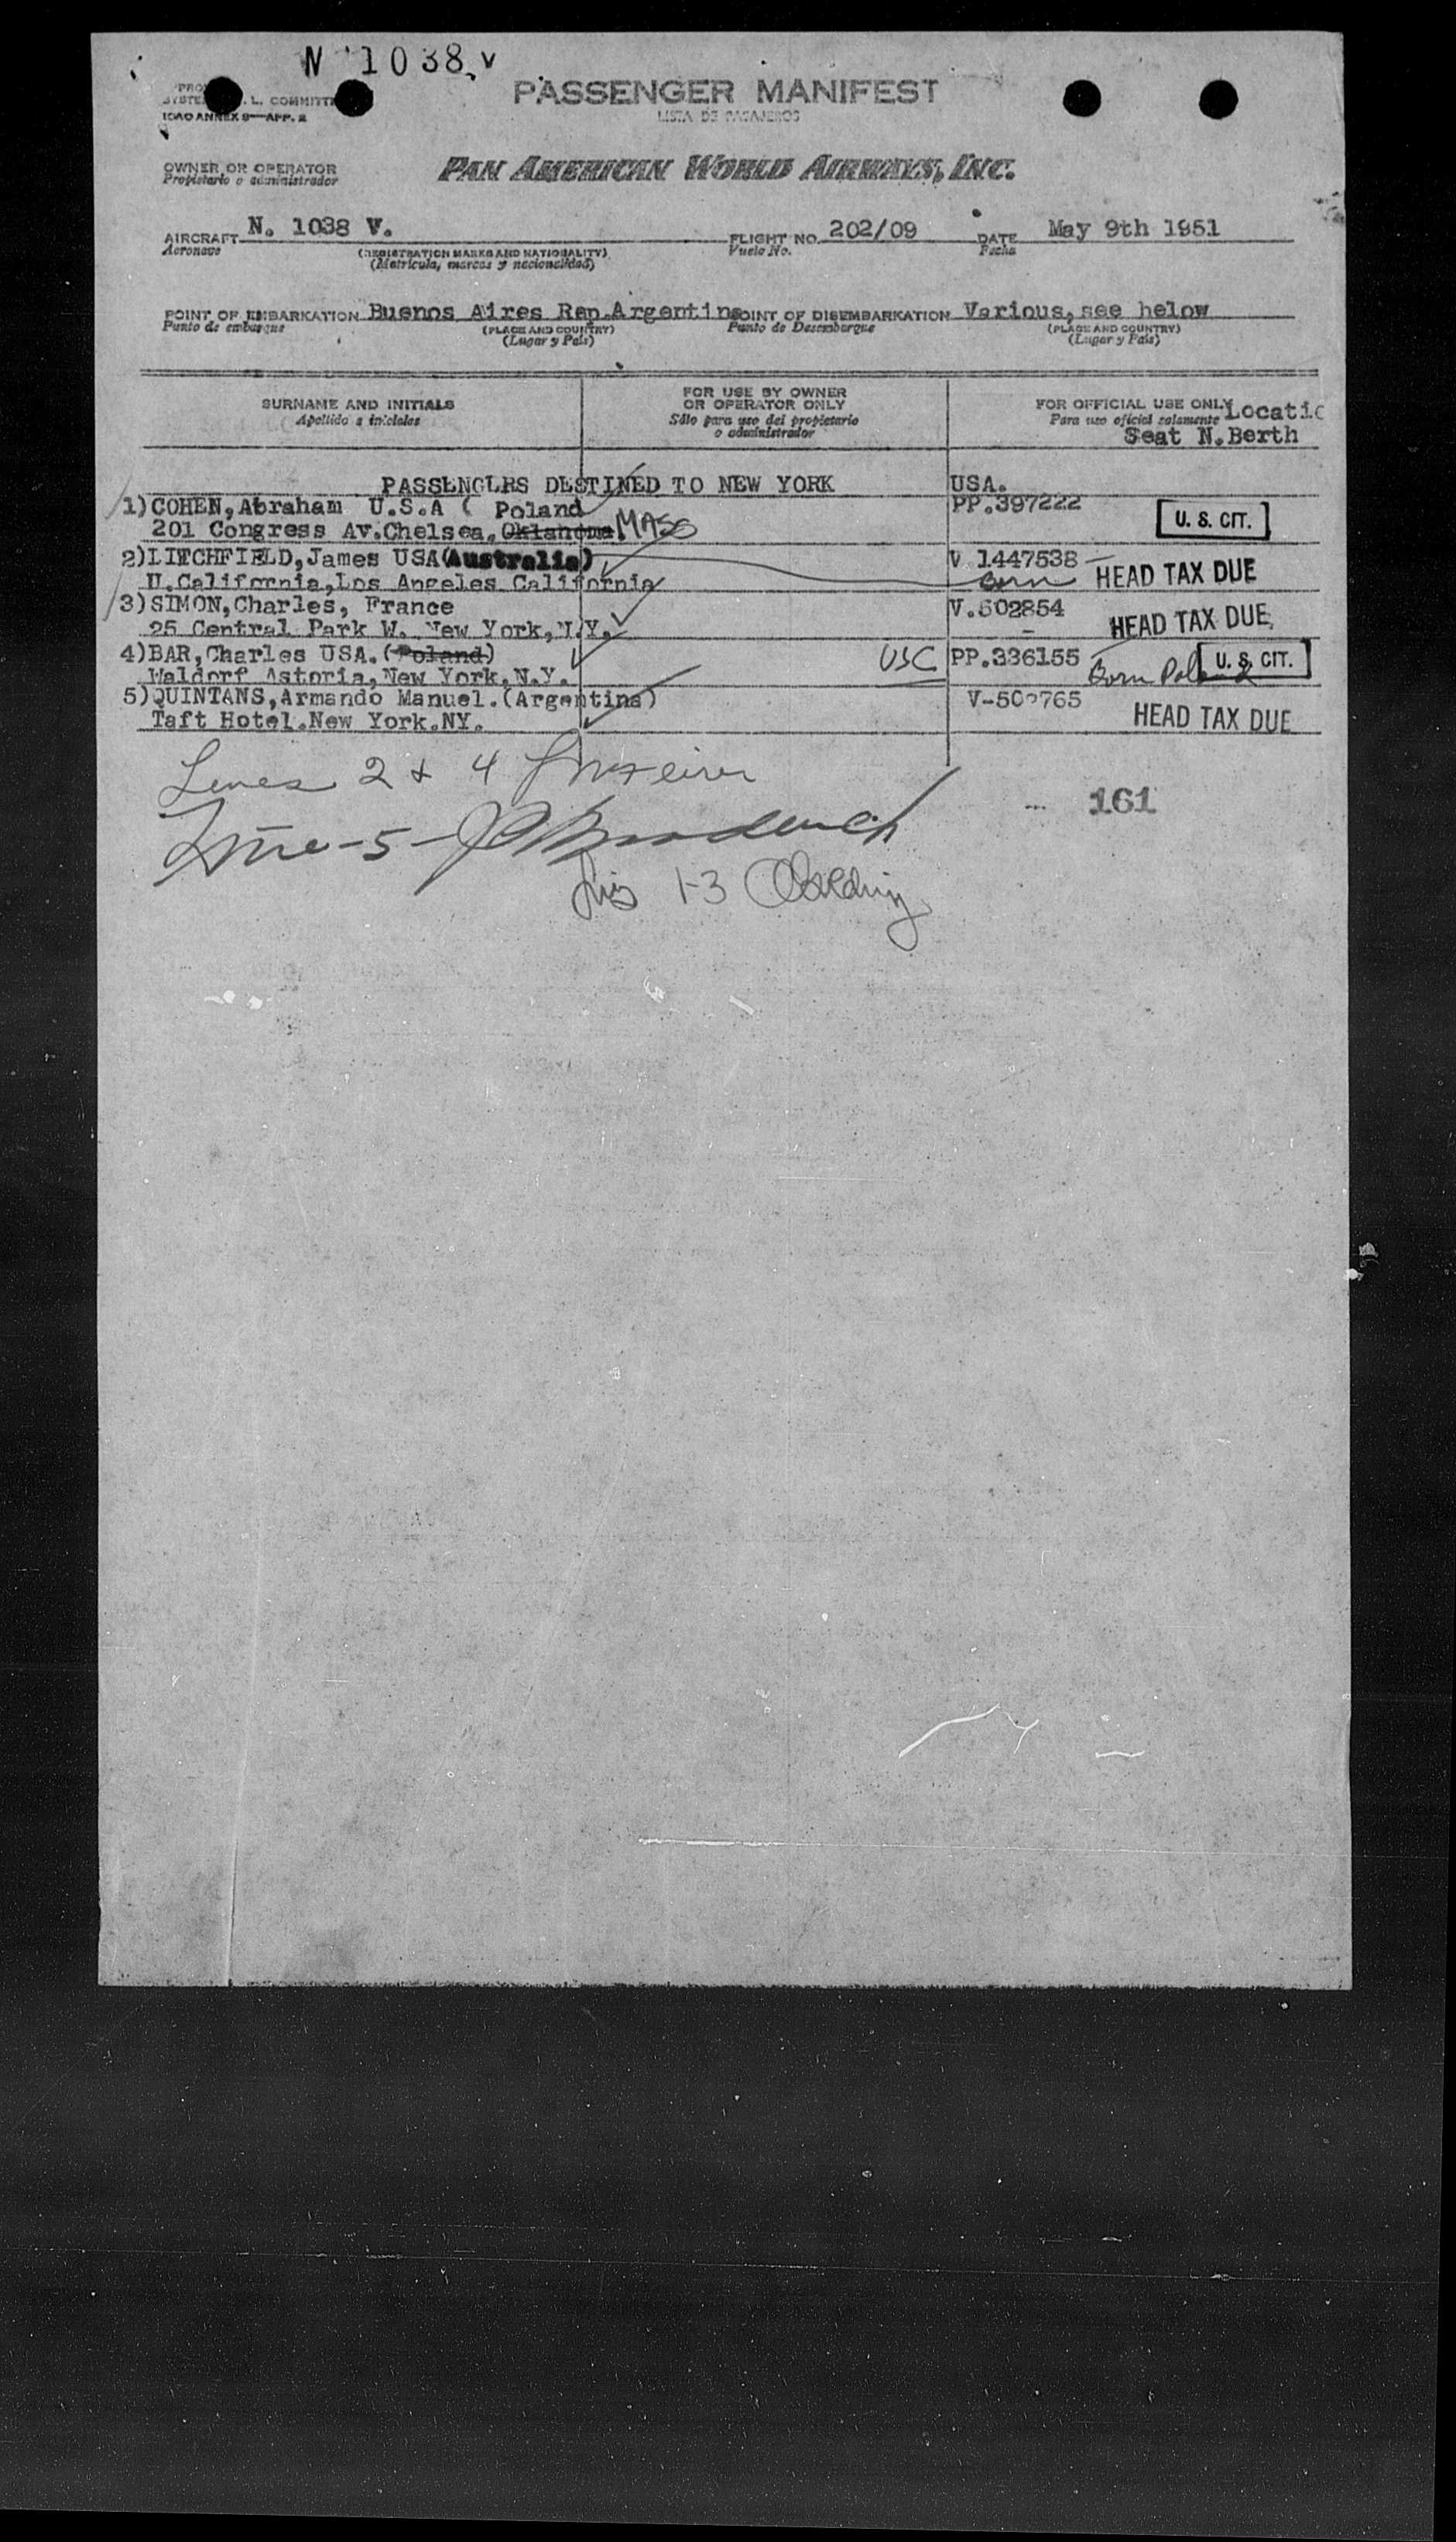 N 1038 V
L. COMMITT
ICAO ANNEX 9—APP. 2
PASSENGER MANIFEST
LISTA DE PASAJEROS
OWNER OR OPERATOR
Propietario o administrador
PAN AMERICAN WORLD AIRWAYS, INC.
AIRCRAFT N. 1038 V. FLIGHT NO. 202/09 DATE May 9th 1951
Aeronave (REGISTRATION MARKS AND NATIONALITY) Vuelo No. Fecha
(Matrícula, marcas y nacionalidad)
POINT OF EMBARKATION Buenos Aires Rep.Argentina POINT OF DISEMBARKATION Various, see below
Punto de embarque (PLACE AND COUNTRY) Punto de Desembarque (PLACE AND COUNTRY)
(Lugar y País) (Lugar y País)
SURNAME AND INITIALS FOR USE BY OWNER OR OPERATOR ONLY FOR OFFICIAL USE ONLY Locatio
Apellido e iniciales Sólo para uso del propietario o administrador Para uso oficial solamente
Seat N.Berth
PASSENGERS DESTINED TO NEW YORK USA.
1) COHEN, Abraham U.S.A ( Poland PP.397222 U. S. CIT.
201 Congress Av.Chelsea, Oklahoma. MASS
2) LITCHFIELD, James USA (Australia) V 1447538 HEAD TAX DUE
U.California, Los Angeles California Born
3) SIMON, Charles, France V.502854 HEAD TAX DUE
25 Central Park W. New York, N.Y.
4) BAR, Charles USA. (Poland) USC PP.336155 U. S. CIT.
Waldorf Astoria, New York, N.Y. Born Poland
5) QUINTANS, Armando Manuel. (Argentina) HEAD TAX DUE
Taft Hotel.New York.NY.
Lines 2 + 4
161
Line - 5 -
Lis 1-3